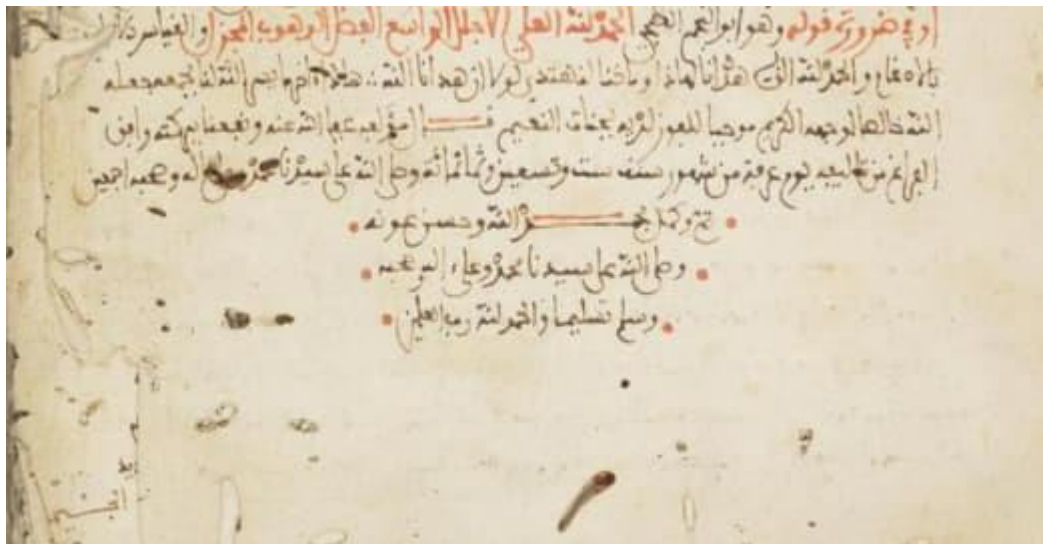 او في ضرورة قوله وهو ابو النجم العجلي الحمد لله العلي الاجلل الواسع الفضل الوهوب المجزل والقياس
بالادغام والحمد لله الذي هدانا لهذا وما كنا لنهتدي لولا ان هدانا الله ∴ هذا ءاخر ما يسر الله لنا جمعه جعله
الله خالصا لوجهه الكريم موجبا للفوز لديه بجنات النعيم قال مؤلفه عفا الله عنه ونفعنا ببركته وافق
الفراغ من تاليفه يوم عرفة من شهور سنة ست وتسعين وثمانمائة وصلى الله على سيدنا محمد وعلى اله وصحبه اجمعين
تم وكمل بحمد الله وحسن عونه
وصلى الله على سيدنا محمد وعلى اله وصحبه
وسلم تسليما والحمد لله رب العلمين